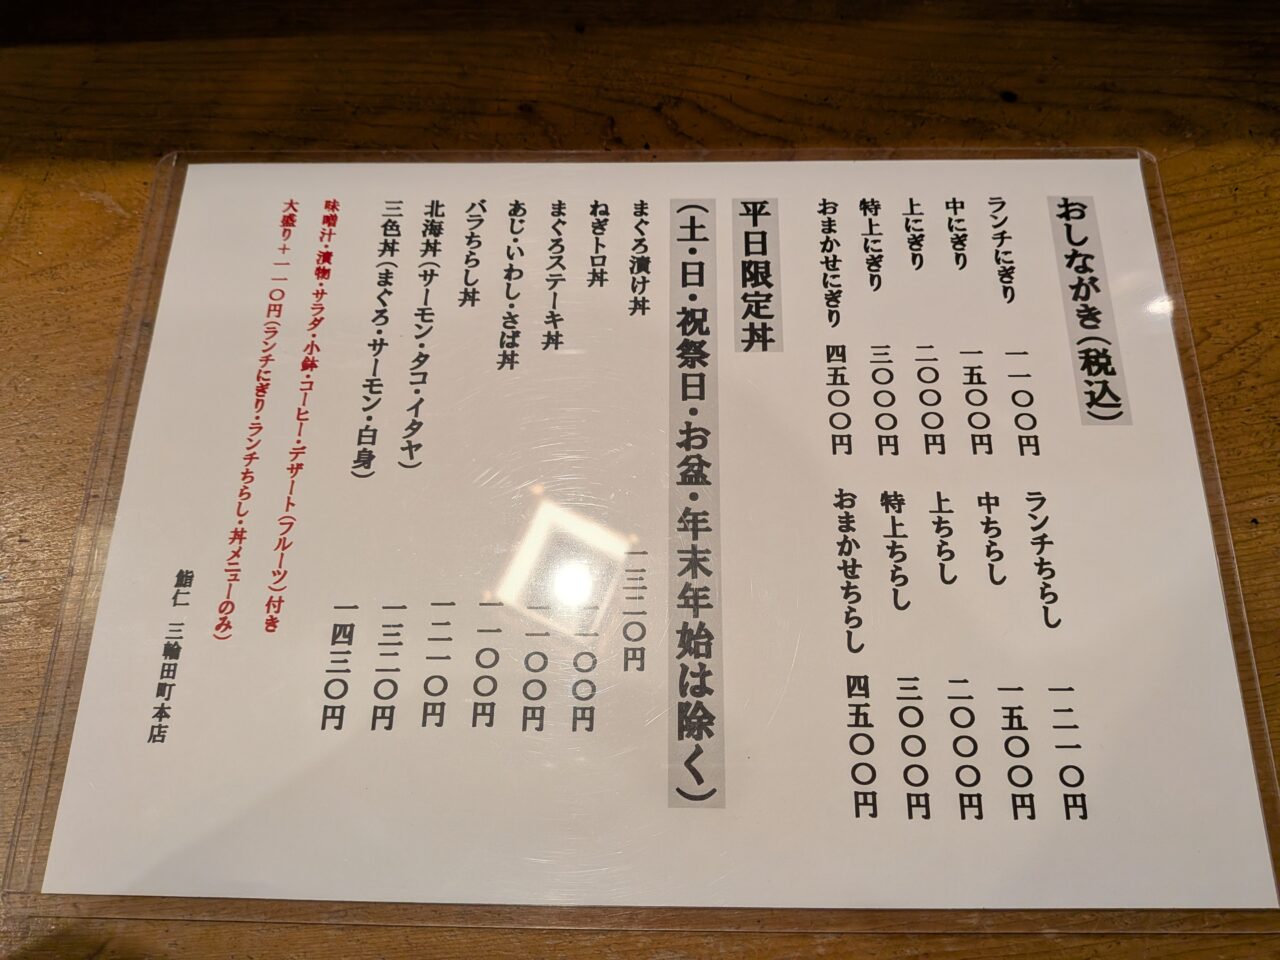 おしながき(税込)
ランチにぎり 一一〇〇円
中にぎり 一五〇〇円
上にぎり 二〇〇〇円
特上にぎり 三〇〇〇円
おまかせにぎり 四五〇〇円
ランチちらし 一二一〇円
中ちらし 一五〇〇円
上ちらし 二〇〇〇円
特上ちらし 三〇〇〇円
おまかせちらし 四五〇〇円
平日限定丼
(土・日・祝祭日・お盆・年末年始は除く)
まぐろ漬け丼 一三二〇円
ねぎトロ丼 一一〇〇円
まぐろステーキ丼 一一〇〇円
あじ・いわし・さば丼 一一〇〇円
バラちらし丼 一二一〇円
北海丼(サーモン・タコ・イタヤ) 一三二〇円
三色丼(まぐろ・サーモン・白身) 一四三〇円
味噌汁・漬物・サラダ・小鉢・コーヒー・デザート(フルーツ)付き
大盛り+一一〇円(ランチにぎり・ランチちらし・丼メニューのみ)
鮨仁 三輪田町本店